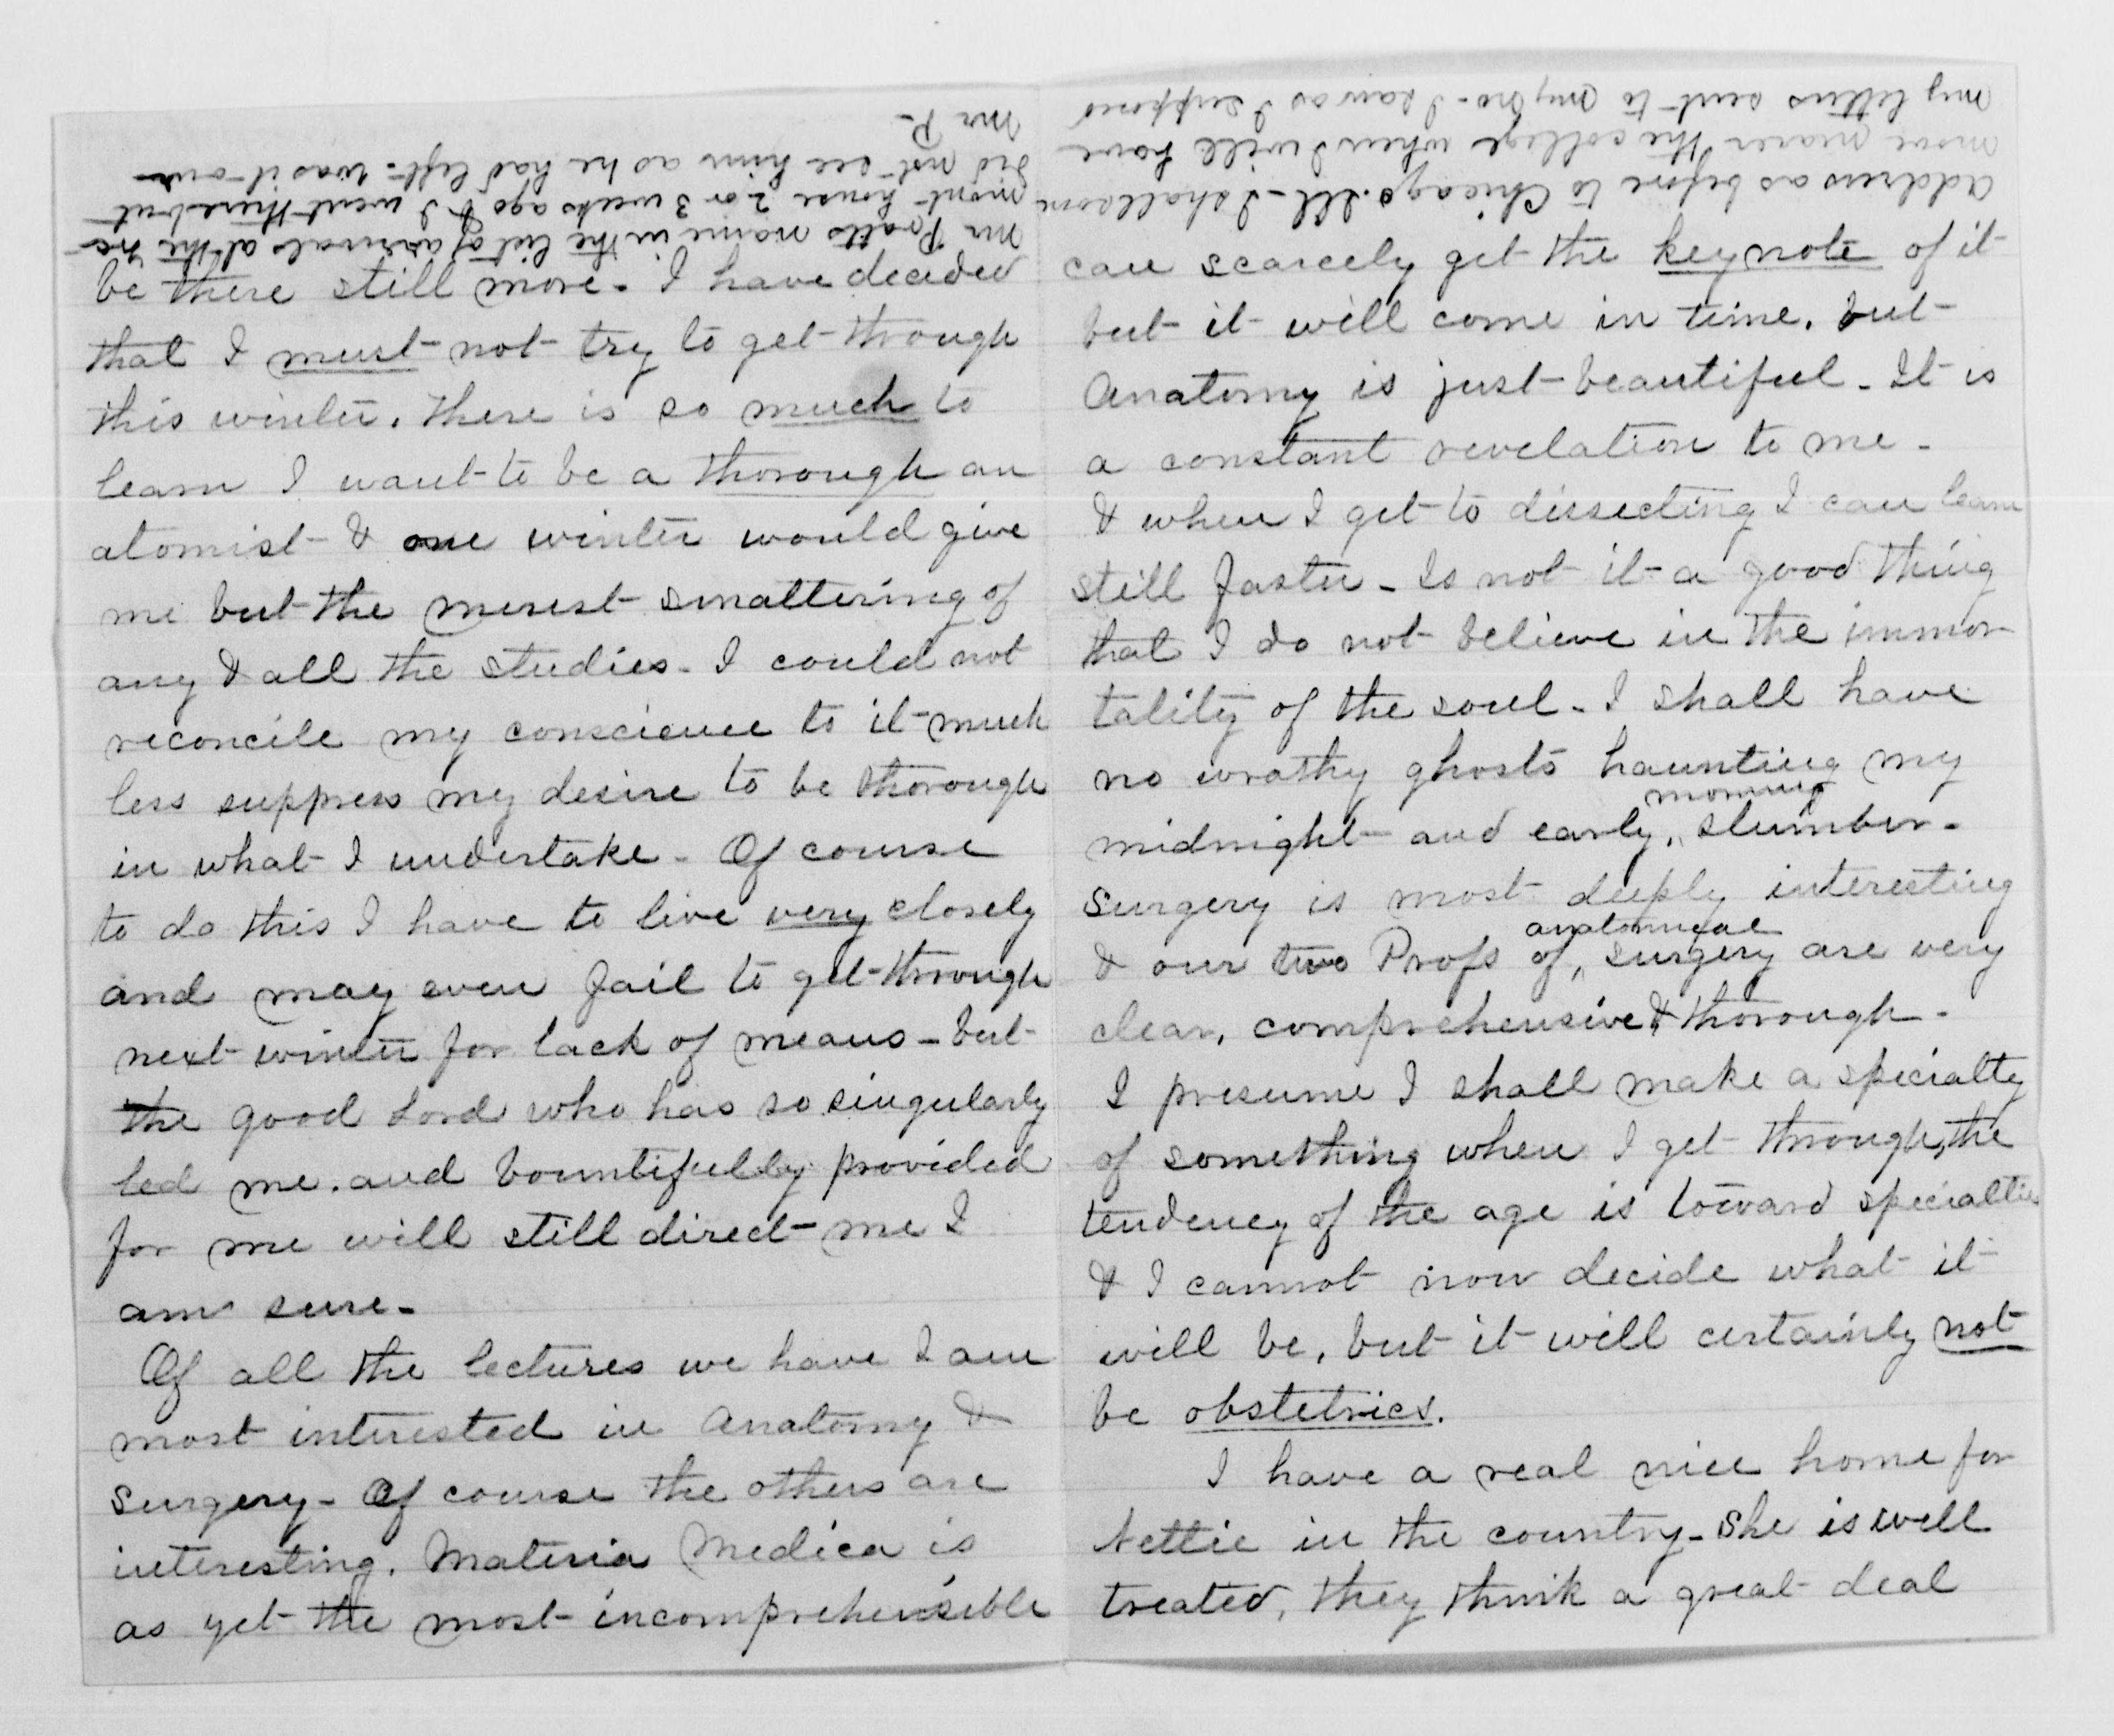 be there still more - I have decided
that I must not try to get through
this winter. There is so much to
learn I want to be a thorough an
atomist & one winter would give
me but the merest smattering of
any & all the studies - I could not
reconcile my conscience to it much
less suppress my desire to be thorough
in what I undertake - Of course
to do this I have to live very closely
and may even fail to get through
next winter for lack of means - but
the good Lord who has so singularly
led me. and bountifully provided
for me will still direct me I
am sure -
Of all the lectures we have I am
most interested in Anatomy &
Surgery - Of course the others are
interesting. Materia Medica is
as yet the most incomprehensible
can scarcely get the key note of it
but it will come in time. but
Anatomy is just beautiful - It is
a constant revelation to me -
& when I get to dissecting I can learn
still faster - Is not it a good thing
that I do not believe in the immor
tality of the soul - I shall have
no wrathy ghosts haunting my
midnight and early morning slumber -
Surgery is most deeply interesting
& our two Profs of anatomical surgery are very
clear, comprehensive & thorough -
I presume I shall make a specialty
of something when I get through, the
tendency of the age is toward specialties
& I cannot now decide what it
will be, but it will certainly not
be obstetrics.
I have a real nice home for
Nettie in the country - She is well
treated, they think a great deal
Address as before to Chicago. Ill - I shall soon
move nearer the college when I will have
my letters sent to my no - I saw as I suppose
Mr Pratts name in the list of arrivals at the Tre
mont house 2 or 3 weeks ago & I went there but
did not see him as he had left - was it our
Mr P -